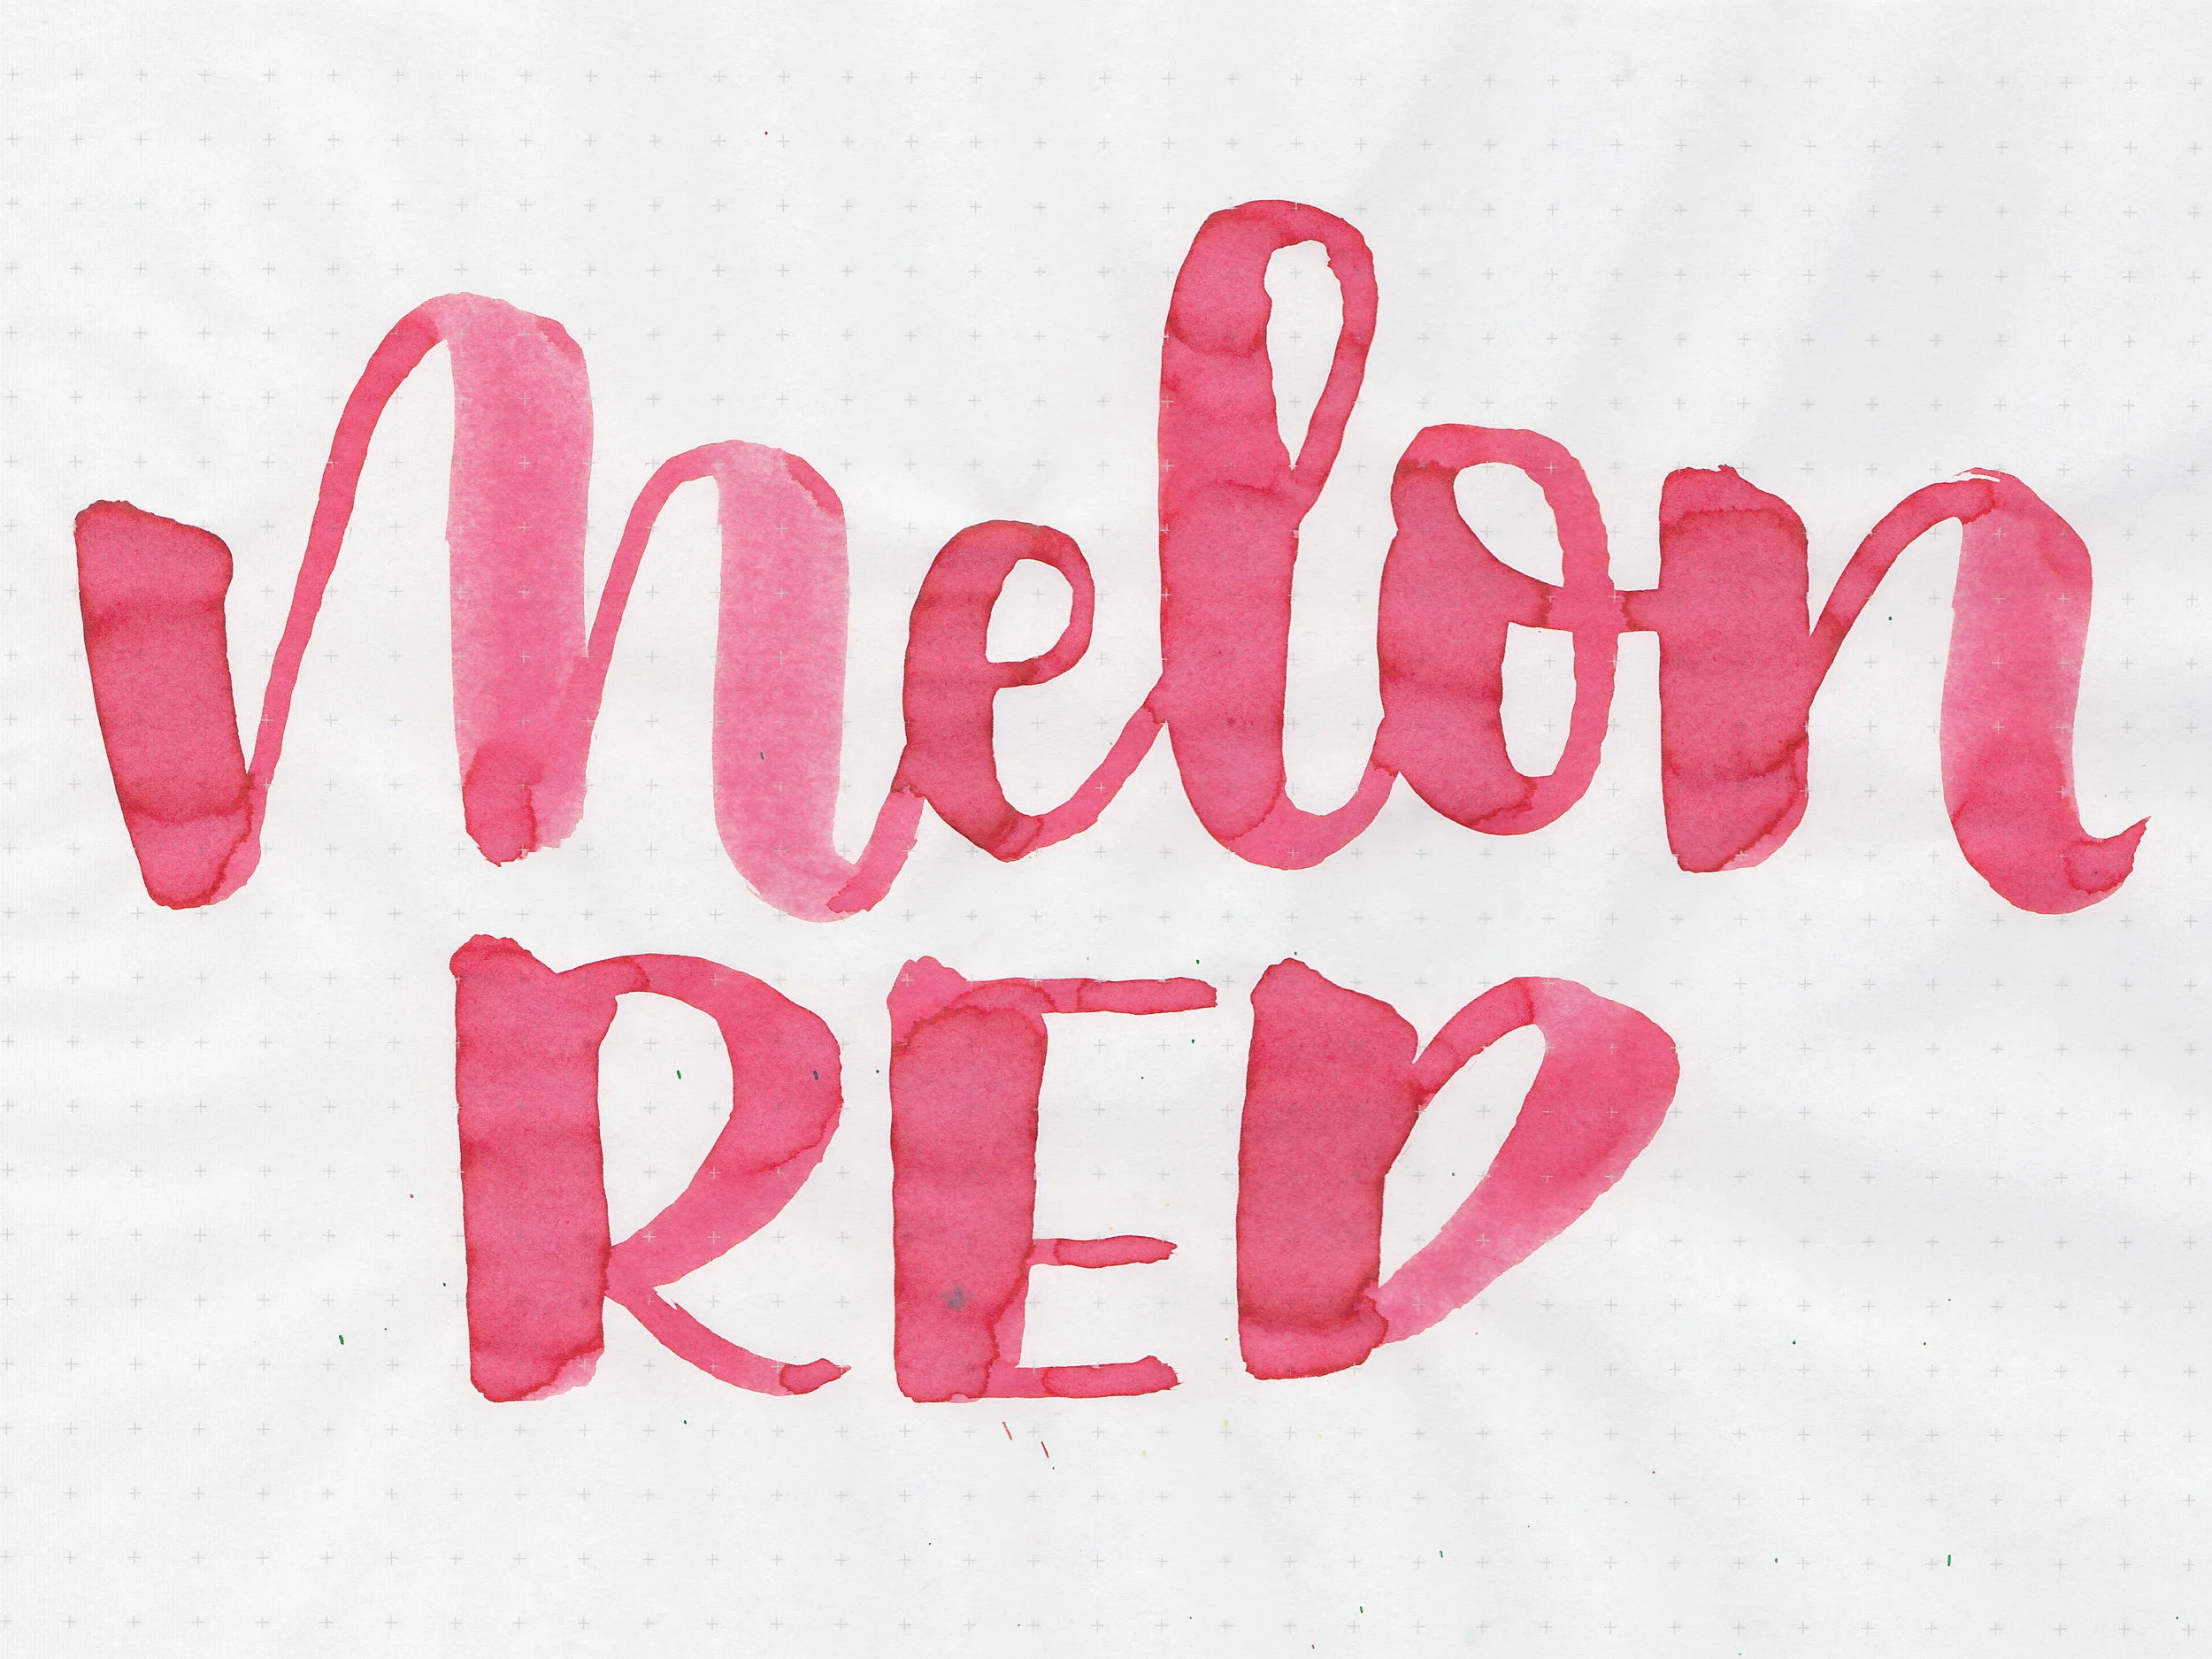 Melon
RED